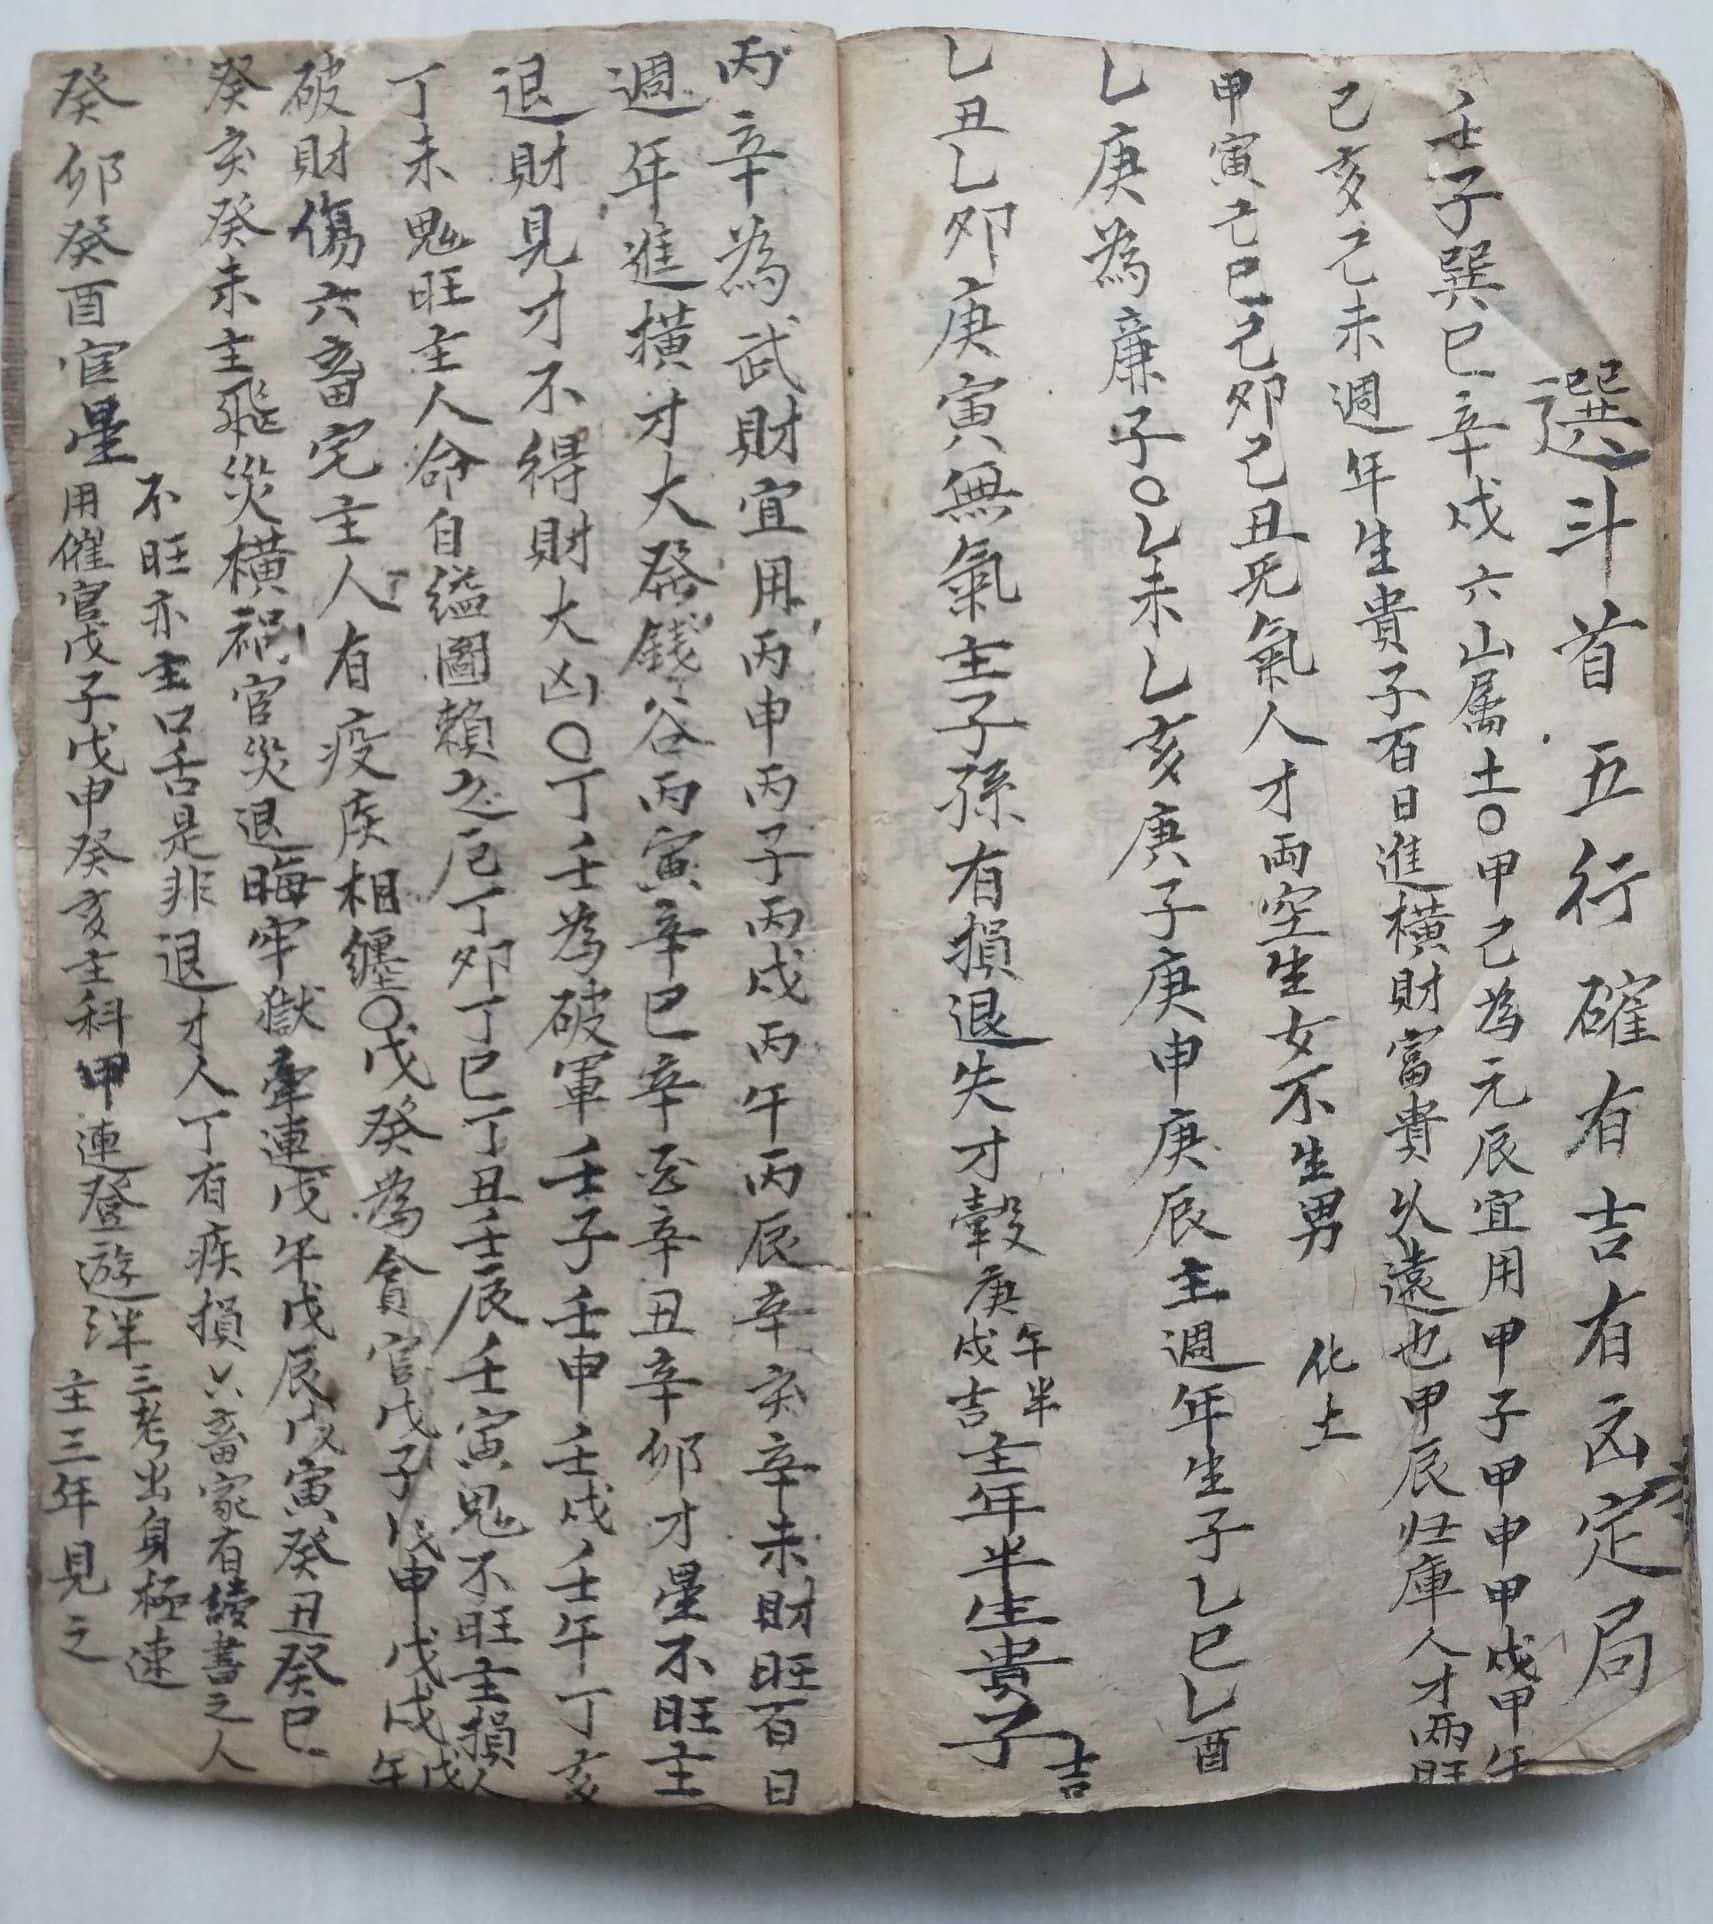 選斗首五行確有吉有凶定局
壬子巽巳辛戌六山属土○甲己為元辰宜用甲子甲申甲戌甲午
己亥己未週年生貴子百日進橫財富貴久遠也甲辰归庫人才兩旺
甲寅己巳己卯己丑死氣人才両空生女不生男 化土
乚庚為廉子○乚未乚亥庚子庚申庚辰主週年生子乚巳乚酉
乚丑乚卯庚寅無氣主子孫有損退失才穀庚戌吉午半主年半生貴子吉
丙辛為武財宜用丙申丙子丙戌丙午丙辰辛亥辛未財旺百日
週年進横才大發錢谷丙寅辛巳辛酉辛丑辛卯才星不旺主
退財見才不得財大凶○丁壬為破軍壬子壬申壬戌壬午丁亥
丁未鬼旺主人命自縊圖賴之厄丁卯丁巳丁丑壬辰壬寅鬼不旺主損人
破財傷六畜宅主人有疫疾相纏○戊癸為貪官戊子戊申戊戌戊午
癸亥癸未主飛災横禍官災退晦牢獄牽連戊午戊辰戊寅癸丑癸巳
不旺亦主口舌是非退才人丁有疾損六畜家有讀書之人
癸卯癸酉官星用催官戊子戊申癸亥主科甲連登遊泮三考出身極速
主三年見之